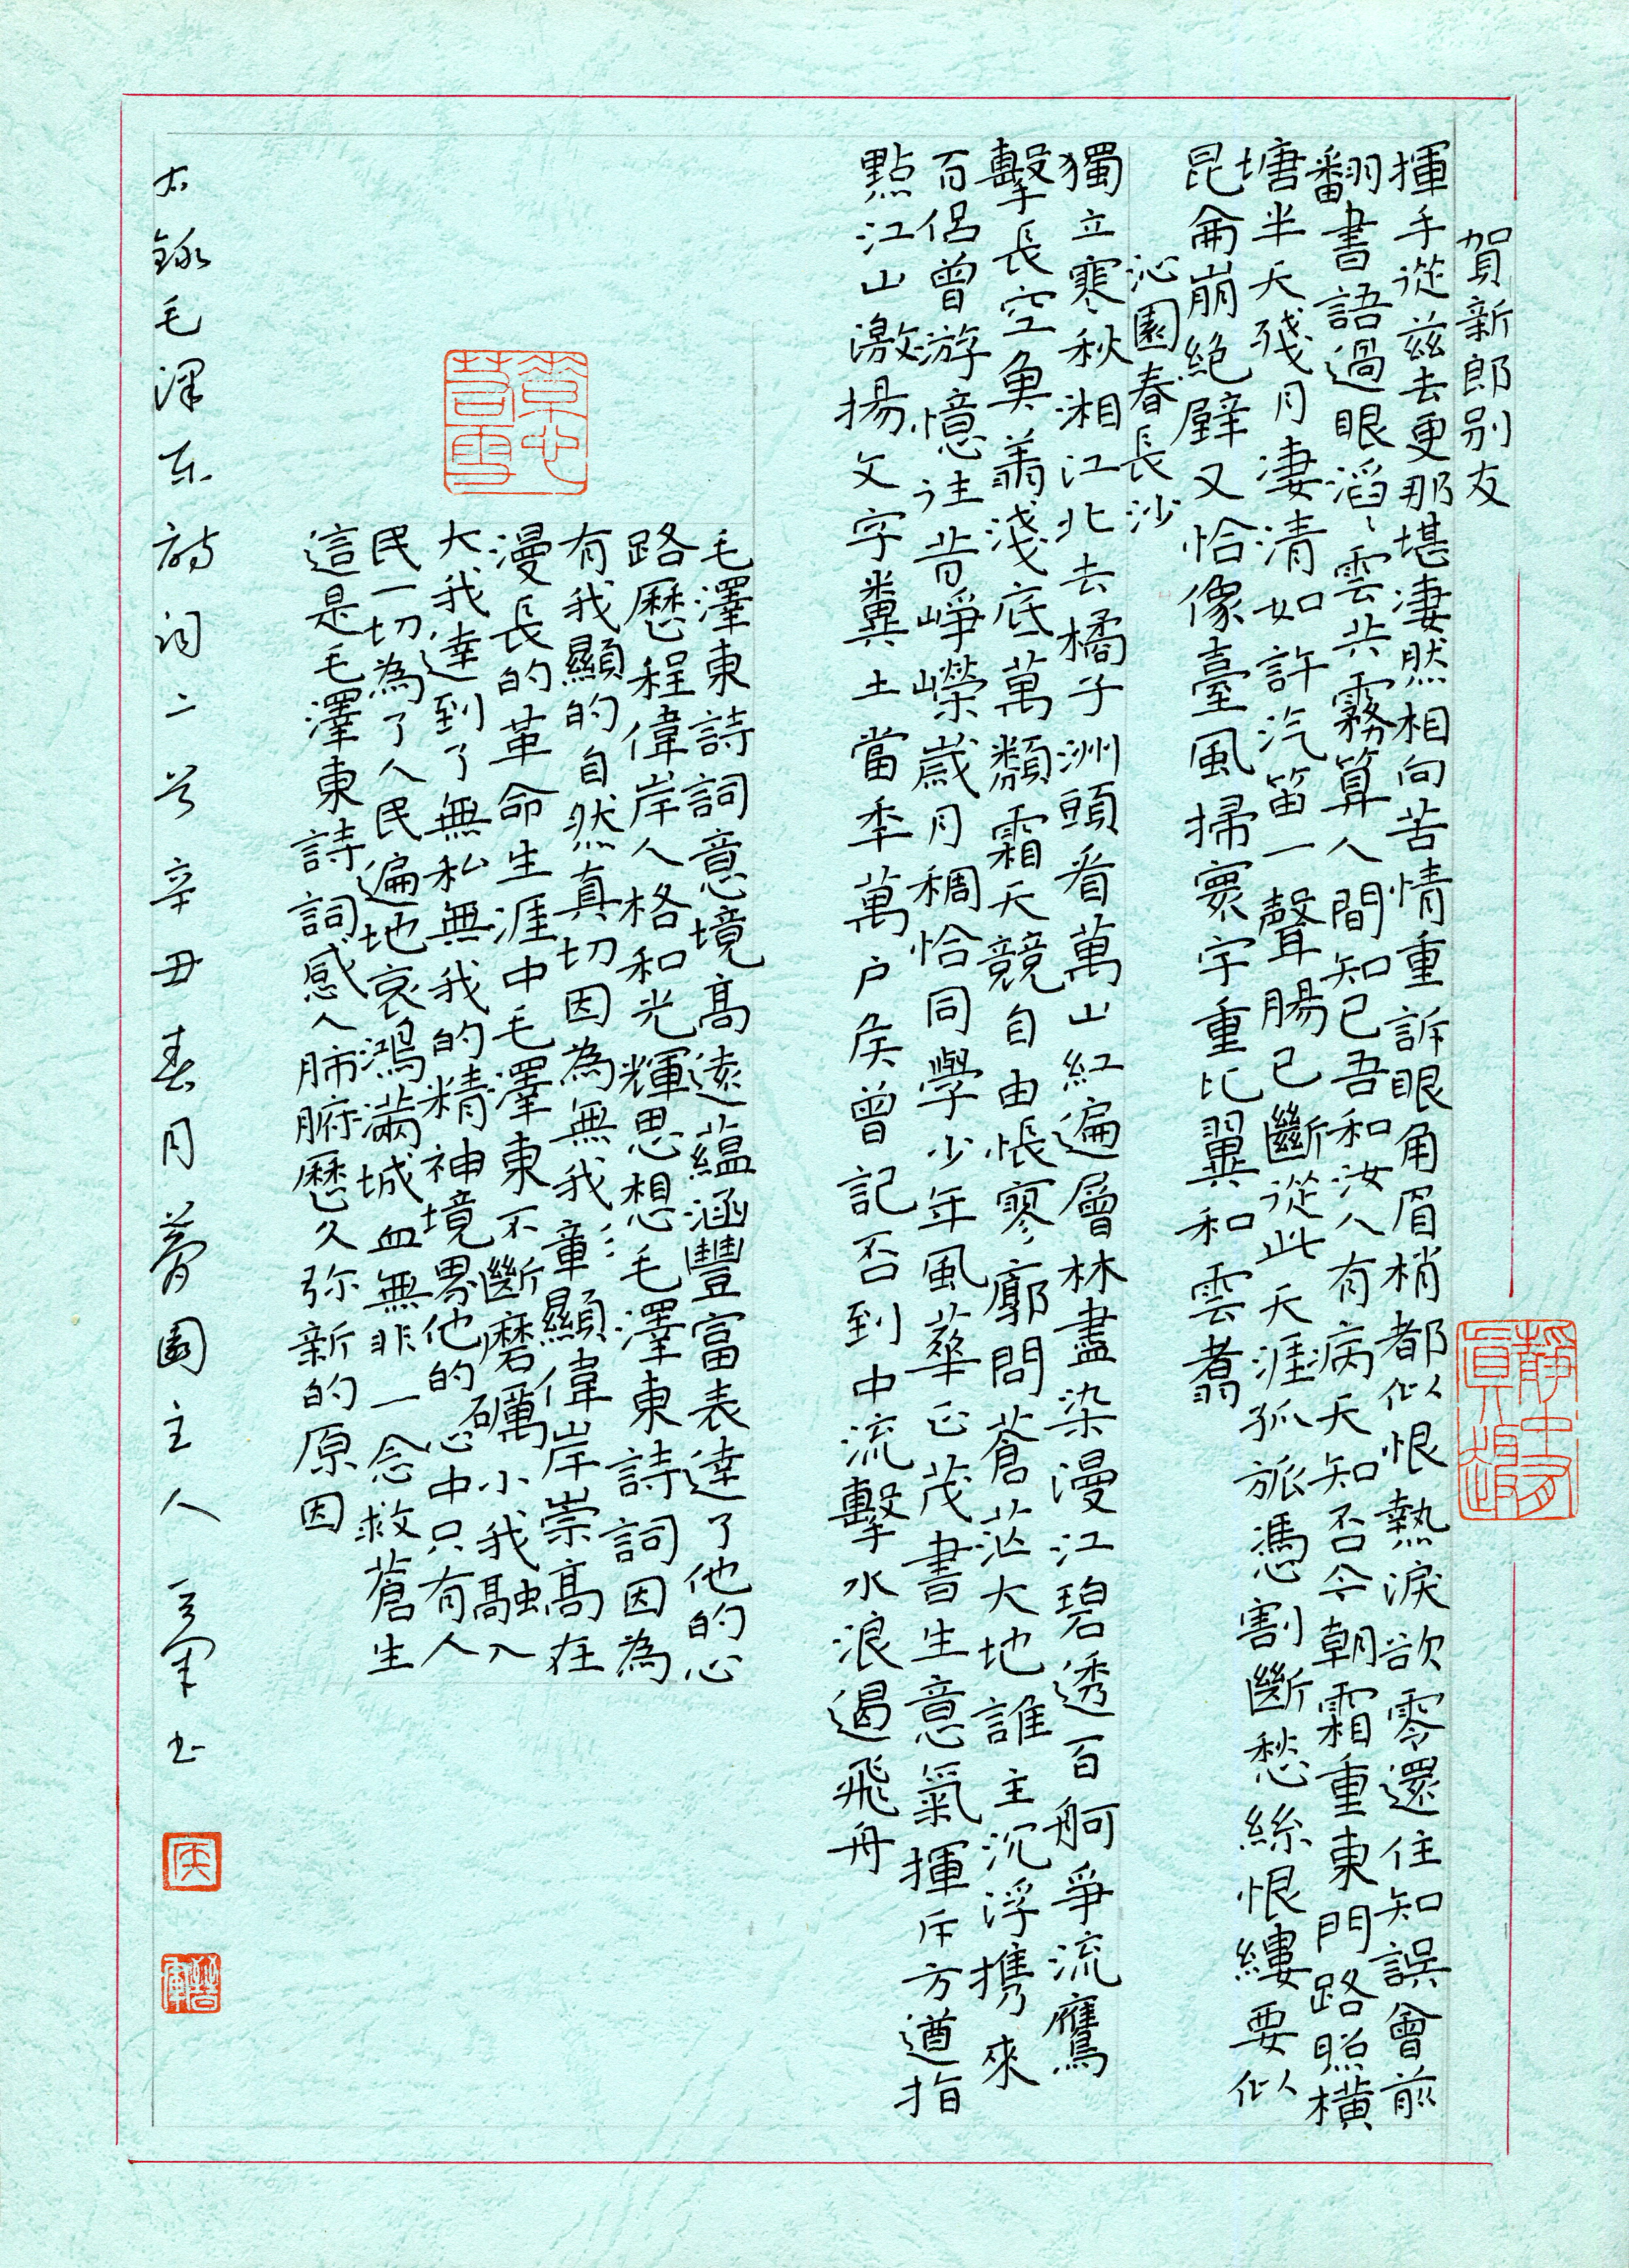 賀新郎别友
揮手從兹去更那堪凄然相向苦情重訴眼角眉梢都似恨熱淚欲零還住知誤會前
翻書語過眼滔〻雲共霧算人間知已吾和汝人有病天知否今朝霜重東門路照橫
塘半天殘月凄清如許汽笛一聲腸已斷從此天涯孤旅憑割斷愁絲恨縷要似
昆侖崩絕壁又恰像臺風掃寰宇重比翼和雲翥
沁園春長沙
獨立寒秋湘江北去橘子洲頭看萬山紅遍層林盡染漫江碧透百舸爭流鷹
擊長空魚翔淺底萬類霜天競自由悵寥廓問蒼茫大地誰主沉浮携來
百侶曾游憶往昔崢嶸歲月稠恰同學少年風華正茂書生意氣揮斥方遒指
點江山激揚文字糞土當年萬户矦曾記否到中流擊水浪遏飛舟
毛澤東詩詞意境高遠蕴涵豐富表達了他的心
路歷程偉岸人格和光輝思想毛澤東詩詞因為
有我顯的自然真切因為無我彰顯偉岸崇高在
漫長的革命生涯中毛澤東不斷磨礪小我融入
大我達到了無私無我的精神境界他的心中只有人
民一切為了人民遍地哀鴻滿城血無非一念救蒼生
這是毛澤東詩詞感人肺腑歷久弥新的原因
右錄毛澤东詩词二首辛丑春月 園主人 军书
静中有
真趣
矦